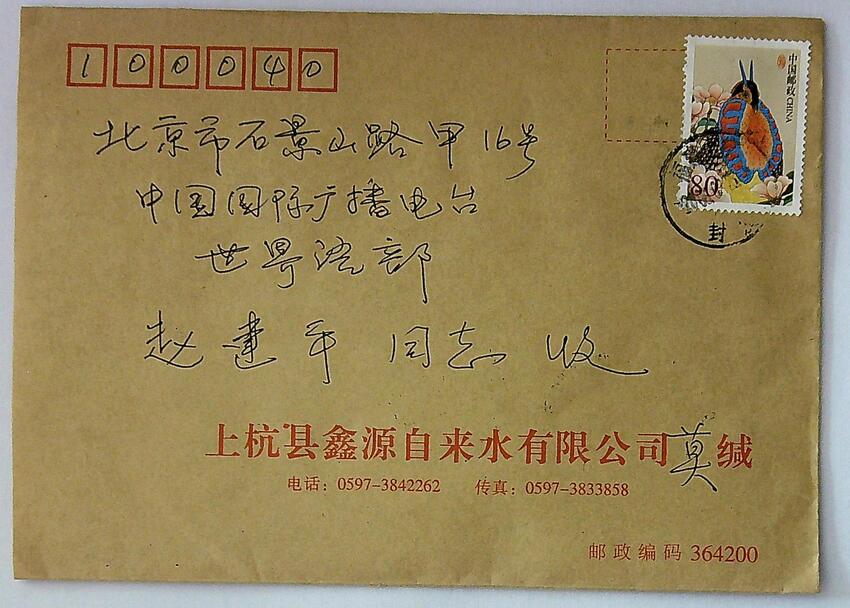 100040
中国邮政 CHINA
80
封
北京市石景山路甲16号
中国国际广播电台
世界语部
赵建平 同志 收
上杭县鑫源自来水有限公司莫缄
电话：0597-3842262 传真：0597-3833858
邮政编码 364200